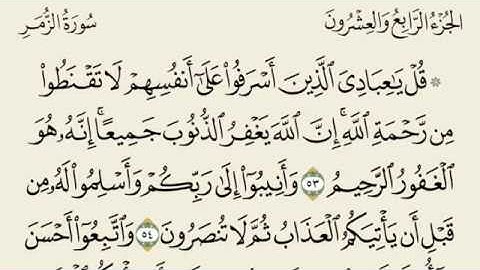 الجزء الرابع والعشرون
سورة الزمر
۞ قُلْ يَٰعِبَادِىَ ٱلَّذِينَ أَسْرَفُوا۟ عَلَىٰٓ أَنفُسِهِمْ لَا تَقْنَطُوا۟
مِن رَّحْمَةِ ٱللَّهِ ۚ إِنَّ ٱللَّهَ يَغْفِرُ ٱلذُّنُوبَ جَمِيعًا ۚ إِنَّهُۥ هُوَ
ٱلْغَفُورُ ٱلرَّحِيمُ ٥٣ وَأَنِيبُوٓا۟ إِلَىٰ رَبِّكُمْ وَأَسْلِمُوا۟ لَهُۥ مِن
قَبْلِ أَن يَأْتِيَكُمُ ٱلْعَذَابُ ثُمَّ لَا تُنصَرُونَ ٥٤ وَٱتَّبِعُوٓا۟ أَحْسَنَ